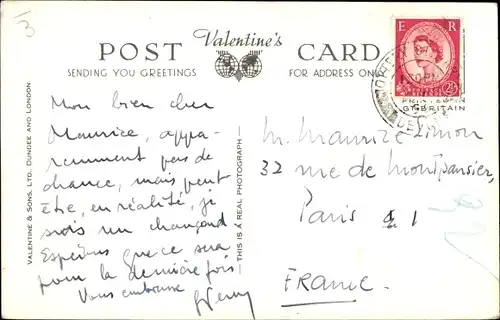 3
POST Valentine's CARD
SENDING YOU GREETINGS
FOR ADDRESS ONLY
Mon bien cher
Maurice, appa-
remment pas de
chance, mais peut
être, en réalité, je
suis un
Espérons que ce sera
pour la dernière fois
Vous embrasse
M. Maurice Limon
32 rue de Montpensier,
Paris 1
FRANCE
VALENTINE & SONS, LTD. DUNDEE AND LONDON.
THIS IS A REAL PHOTOGRAPH
E R
2½
PRINTED IN
GT BRITAIN